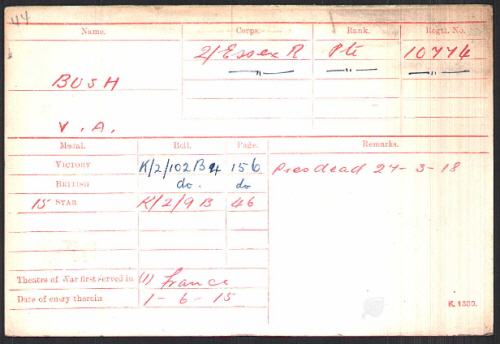 44
Name. Corps. Rank. Regtl. No.
2/Essex R Pte 10774
BUSH — " — — " — — " —
V. A.
Medal. Roll. Page. Remarks.
VICTORY K/2/102B4 156 Pres dead 27-3-18
BRITISH do. do
15 STAR K/2/9B 46
Theatre of War first served in (1) France
Date of entry therein 1-6-15
K. 1380.